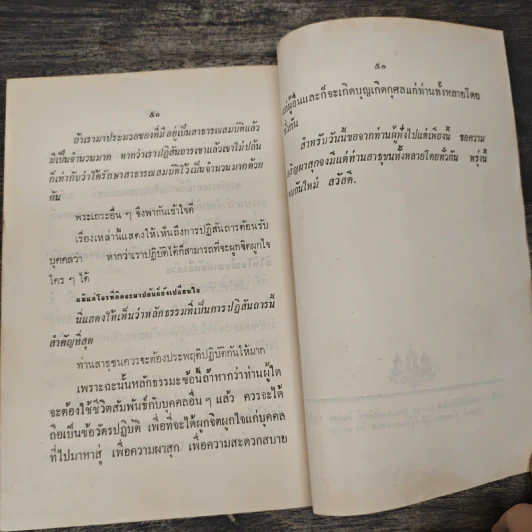 ๕๐
ถ้าเรามาประมวลของที่มีอยู่เป็นสาธารณสมบัติแล้ว
มีเป็นจำนวนมาก หากว่าเราปฏิสันถารเขาแล้วเขาไม่ปล้น
ก็เท่ากับว่าได้รักษาสาธารณสมบัติไว้เป็นจำนวนมากด้วย
กัน
พระเถระอื่น ๆ จึงพากันเข้าใจดี
เรื่องเหล่านี้แสดงให้เห็นถึงการปฏิสันถารต้อนรับ
บุคคลว่า หากว่าเราปฏิบัติได้ก็สามารถที่จะผูกจิตผูกใจ
ใคร ๆ ได้
แม้แต่โจรที่คิดจะมาปล้นก็ยังเปลี่ยนใจ
นี่แสดงให้เห็นว่าหลักธรรมที่เป็นการปฏิสันถารนี้
สำคัญที่สุด
ท่านสาธุชนควรจะต้องประพฤติปฏิบัติกันให้มาก
เพราะฉะนั้นหลักธรรมะข้อนี้ถ้าหากว่าท่านผู้ใด
จะต้องใช้ชีวิตสัมพันธ์กับบุคคลอื่น ๆ แล้ว ควรจะได้
ถือเป็นข้อวัตรปฏิบัติ เพื่อที่จะได้ผูกจิตผูกใจแก่บุคคล
ที่ไปมาหาสู่ เพื่อความผาสุก เพื่อความสะดวกสบาย
๕๑
แก่ผู้อื่นและก็จะเกิดบุญเกิดกุศลแก่ท่านทั้งหลายโดย
ทั่วกัน
สำหรับวันนี้ขอจากท่านผู้ฟังไปแต่เพียงนี้ ขอความ
เจริญผาสุกจงมีแด่ท่านสาธุชนทั้งหลายโดยทั่วกัน พรุ่งนี้
พบกันใหม่ สวัสดี.